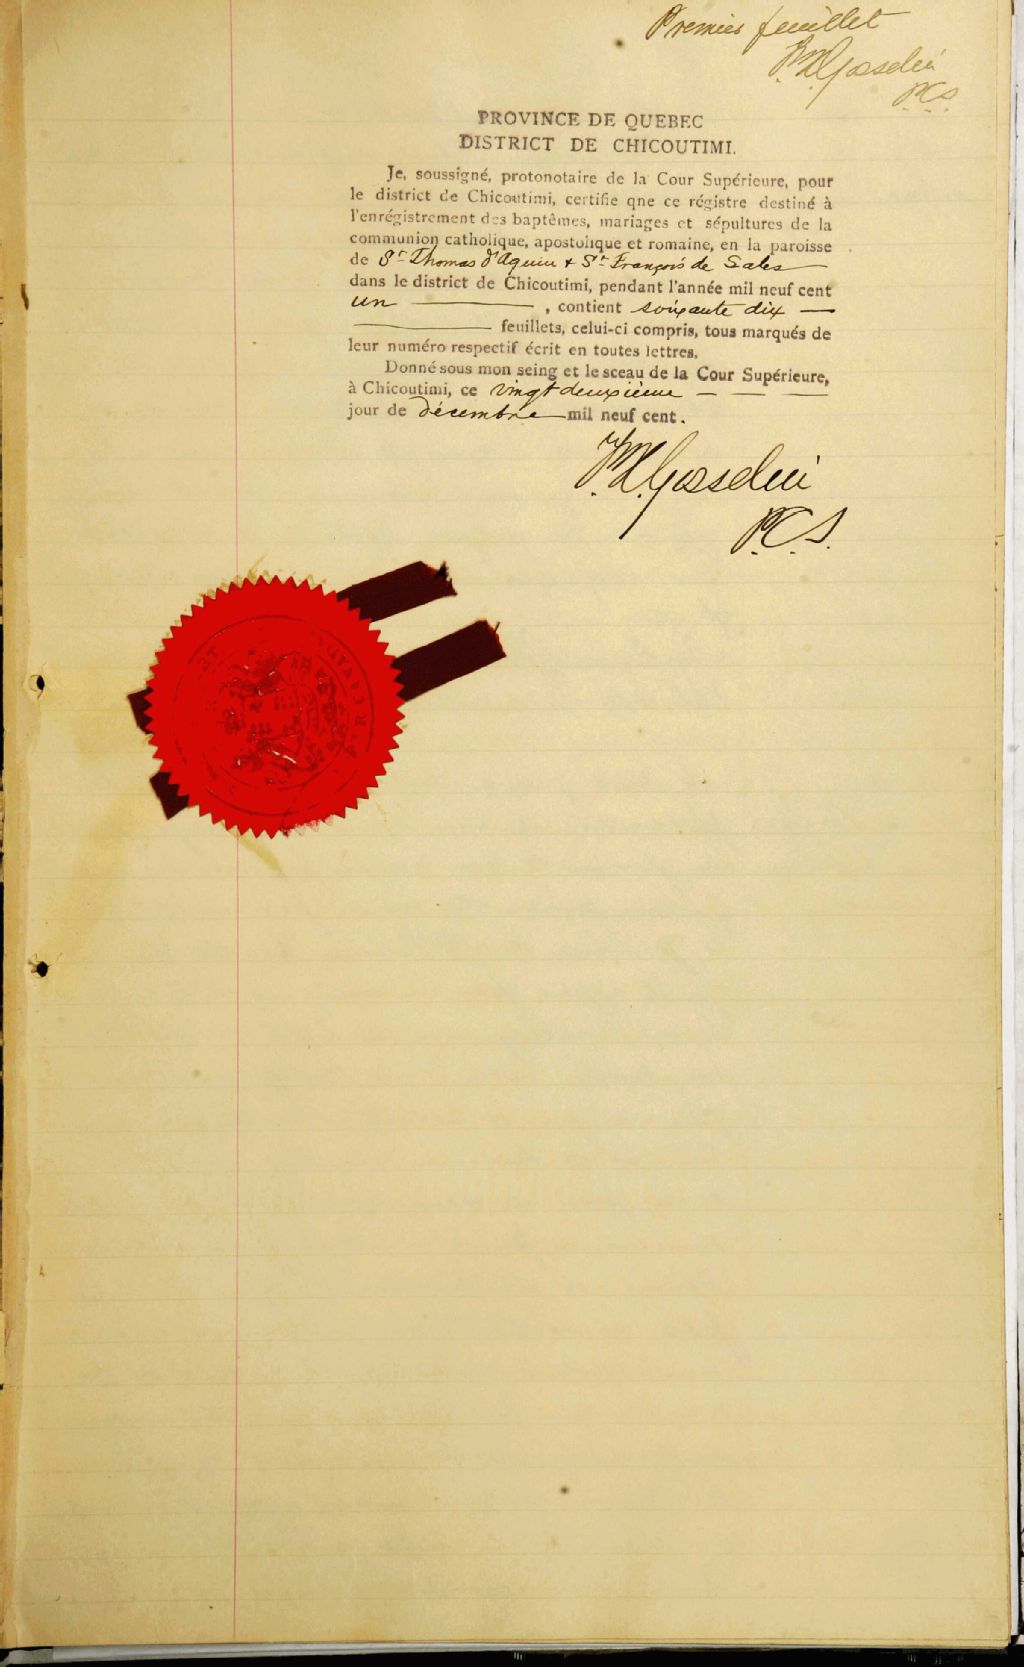 Premier feuillet
Gosselin
P.C.S.
PROVINCE DE QUEBEC
DISTRICT DE CHICOUTIMI.
Je, soussigné, protonotaire de la Cour Supérieure, pour
le district de Chicoutimi, certifie qne ce régistre destiné à
l'enrégistrement des baptêmes, mariages et sépultures de la
communion catholique, apostolique et romaine, en la paroisse
de St Thomas d'Aquin & St François de Sales
dans le district de Chicoutimi, pendant l'année mil neuf cent
un ———, contient soixante dix —
——— feuillets, celui-ci compris, tous marqués de
leur numéro respectif écrit en toutes lettres.
Donné sous mon seing et le sceau de la Cour Supérieure,
à Chicoutimi, ce vingt deuxième — — —
jour de décembre — mil neuf cent.
Gosselin
P.C.S.